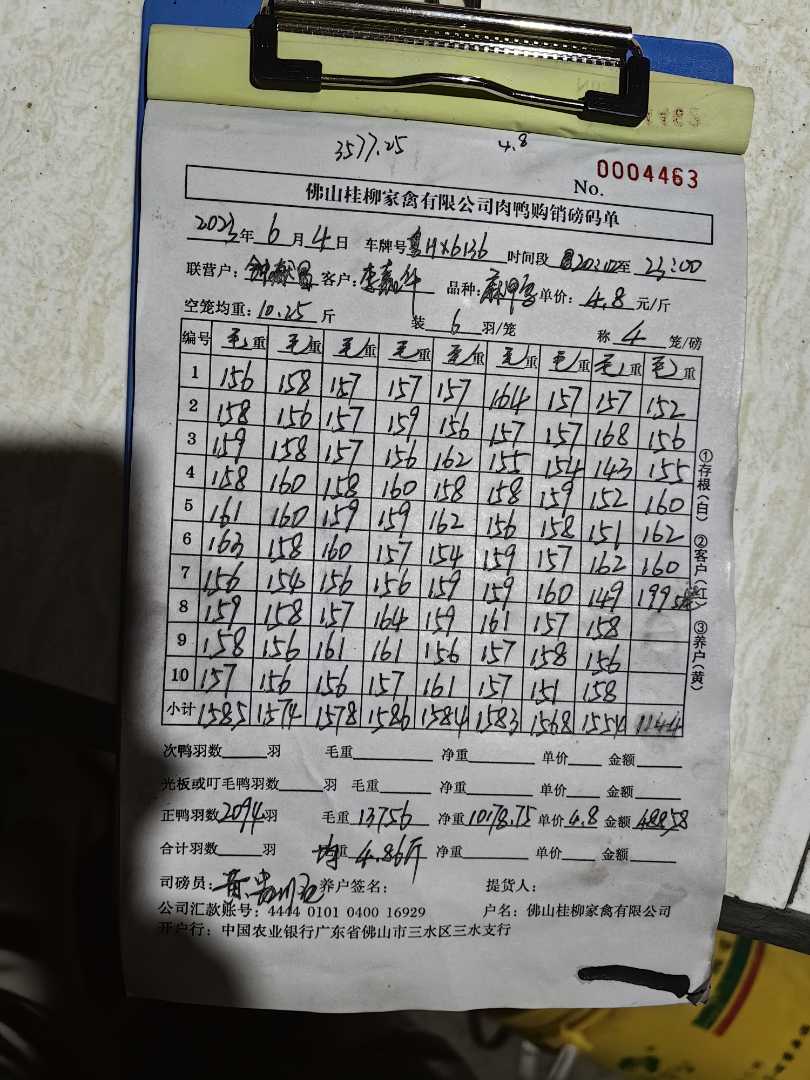 3577.25 4.8
No. 0004463
佛山桂柳家禽有限公司肉鸭购销磅码单
2023年 6 月 4 日 车牌号 粤HX6136 时间段 20:00至 23:00
联营户: 客户:李嘉华 品种: 单价: 4.8 元/斤
空笼均重: 10.25 斤 装 6 羽/笼 称 4 笼/磅
编号 毛重 毛重 毛重 毛重 毛重 毛重 毛重 毛重 毛重
1 156 158 157 157 157 164 157 157 152
2 158 156 157 159 156 157 157 168 156
3 159 158 157 156 162 155 154 143 155
4 158 160 158 160 158 158 159 152 160
5 161 160 159 159 162 156 158 151 162
6 163 158 160 157 154 159 157 162 160
7 156 154 156 156 159 159 160 149 199
8 159 158 157 164 159 161 157 158
9 158 156 161 161 156 157 158 156
10 157 156 156 157 161 157 151 158
小计 1585 1574 1578 1586 1584 1583 1568 1554 1144
①存根(白) ②客户(红) ③养户(黄)
次鸭羽数 羽 毛重 净重 单价 金额
光板或叮毛鸭羽数 羽 毛重 净重 单价 金额
正鸭羽数 2094 羽 毛重 13756 净重 10178.75 单价 4.8 金额 48858
合计羽数 羽 均重 4.86斤 净重 单价 金额
司磅员: 养户签名: 提货人:
公司汇款账号: 4444 0101 0400 16929 户名: 佛山桂柳家禽有限公司
开户行: 中国农业银行广东省佛山市三水区三水支行